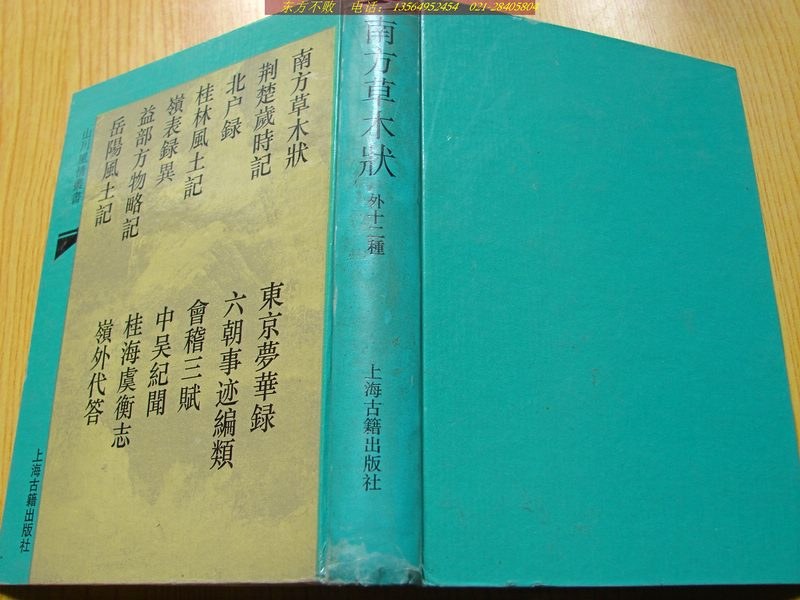 东方不败 电话：13564952454 021-28405804
南方草木狀
荆楚歲時記
北户録
桂林風土記
嶺表録異
益部方物略記
岳陽風土記
東京夢華録
六朝事迹編類
會稽三賦
中吴紀聞
桂海虞衡志
嶺外代答
山川風情叢書
上海古籍出版社
南方草木狀
外十二種
上海古籍出版社